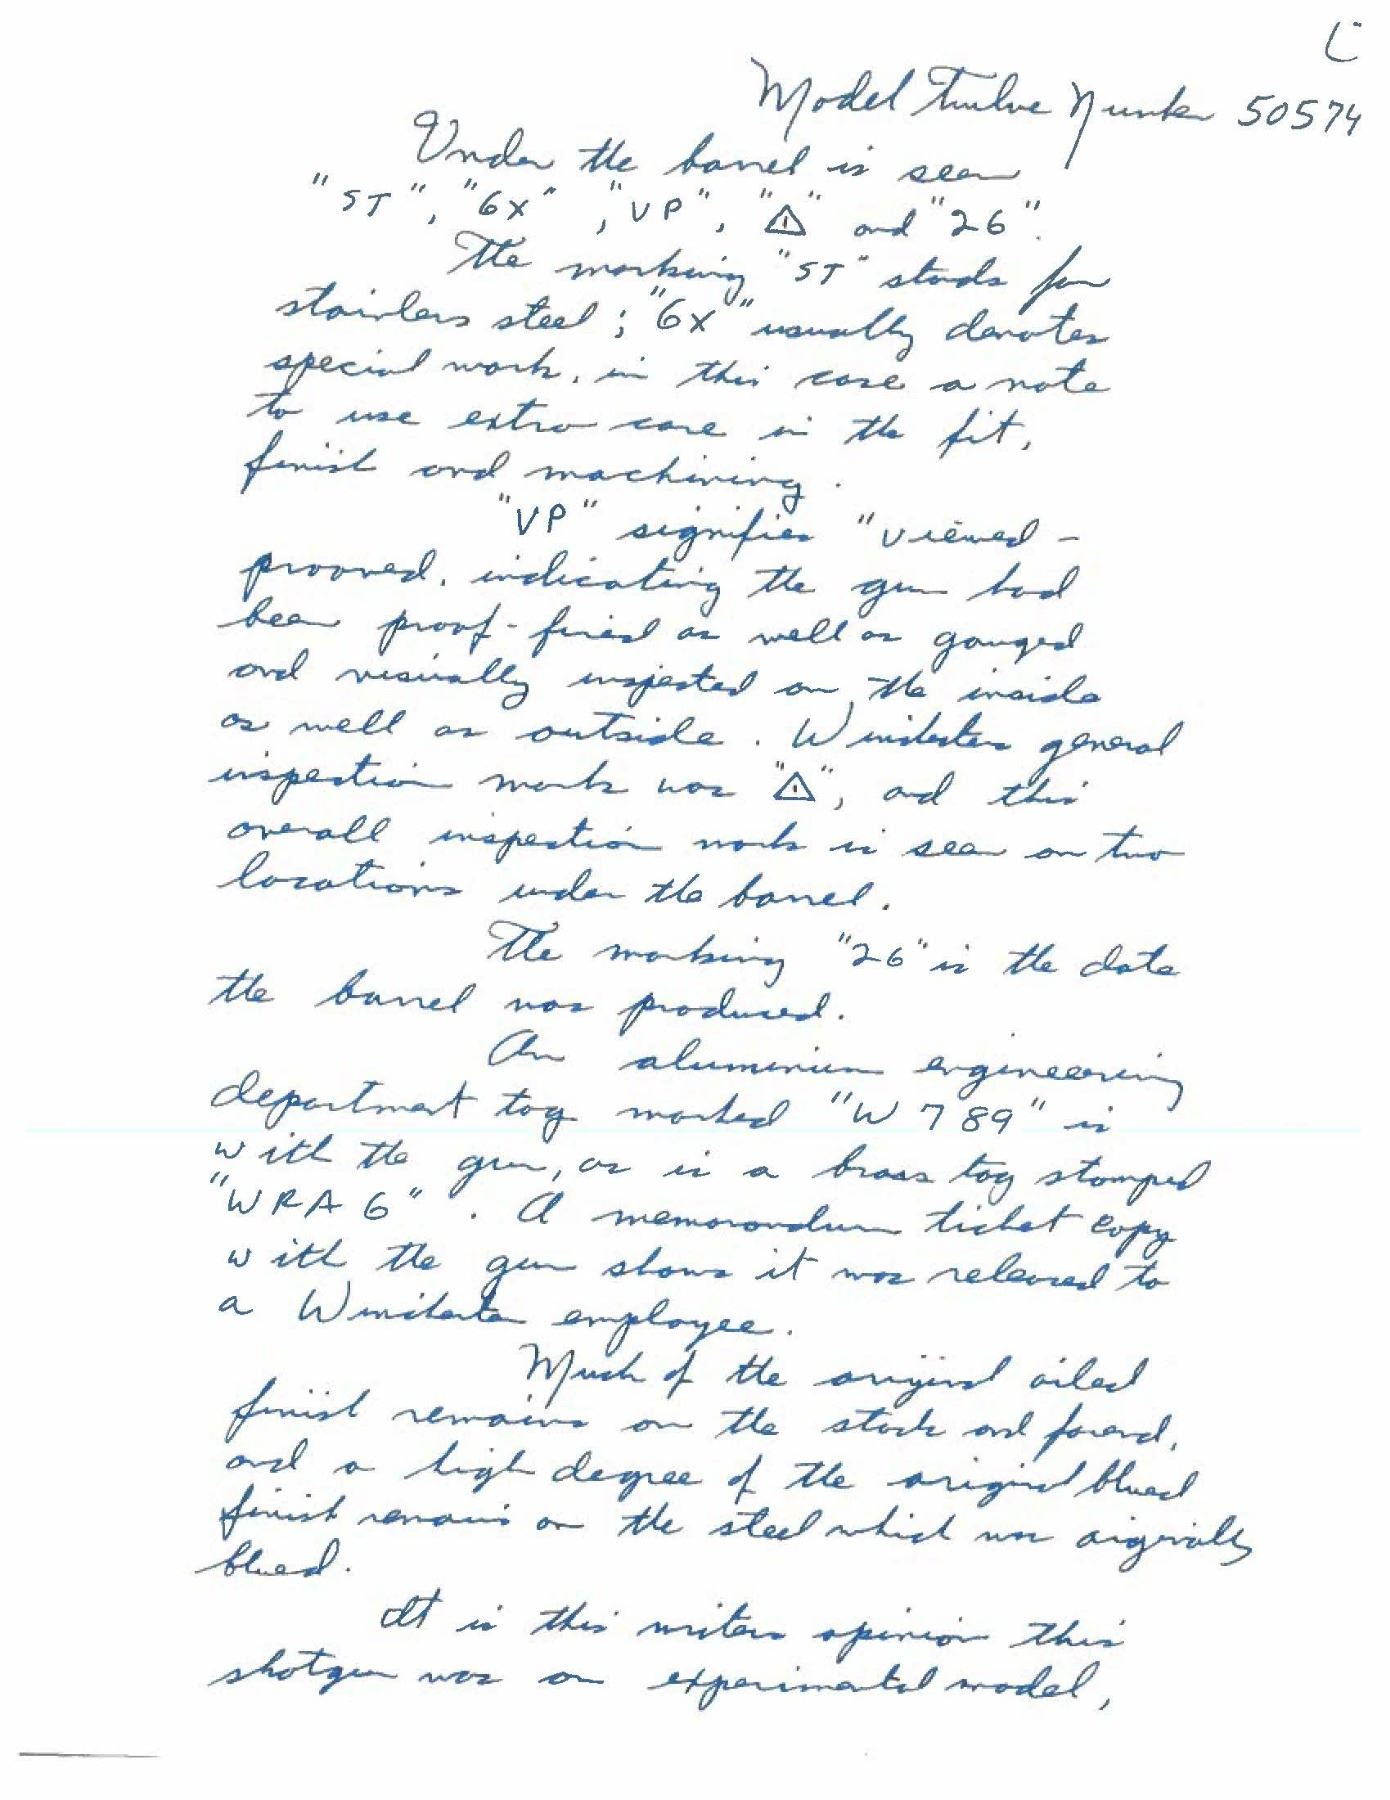 Model Twelve Number 50574
Under the barrel is seen
"ST", "6X", "VP", "⚠" and "26".
The marking "ST" stands for
stainless steel; "6X" usually denotes
special work, in this case a note
to use extra care in the fit,
finish and machining.
"VP" signifies "viewed -
prooved, indicating the gun had
been proof-fired as well as gauged
and visually inspected on the inside
as well as outside. Winchesters general
inspection mark was "⚠", and this
overall inspection mark is seen on two
locations under the barrel.
The marking "26" is the date
the barrel was produced.
An aluminium engineering
department tag marked "W789" is
with the gun, as is a brass tag stamped
"WRA6". A memorandum ticket copy
with the gun shows it was released to
a Winchester employee.
Much of the original oiled
finish remains on the stock and forend,
and a high degree of the original blued
finish remains on the steel which was originally
blued.
It is this writers opinion this
shotgun was an experimental model,